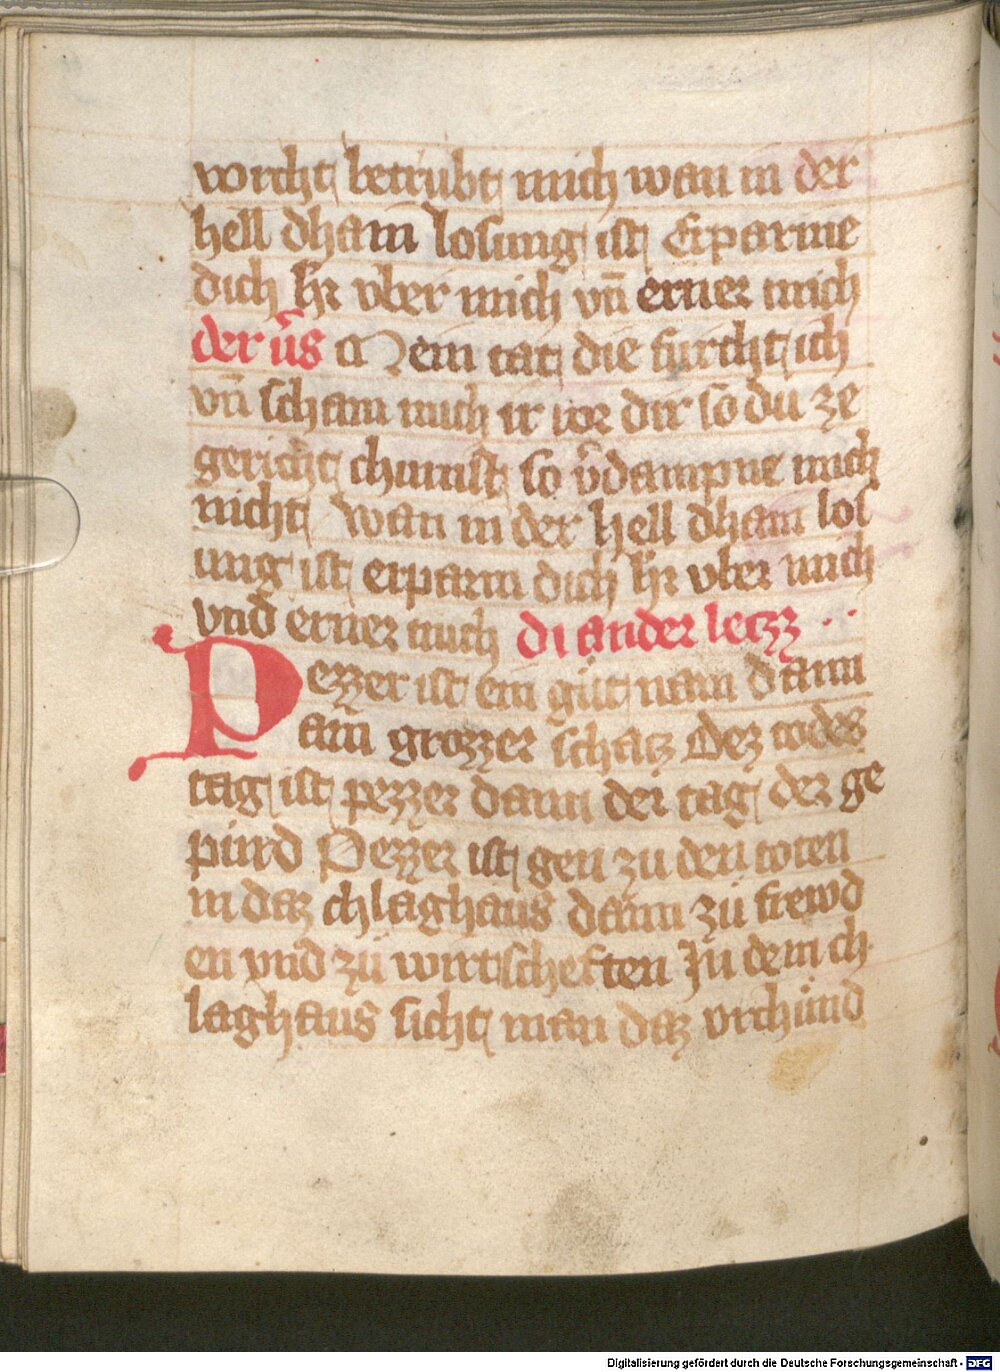 vorcht betrubt mich wan in der
hell dhain losung ist Erparme
dich hr̄ vber mich vn̄ erner mich
der v̄s Mein tat die furcht ich
vn̄ scham mich ir vor dir so du ze
gericht chumst so v̄dampne mich
nicht wan in der hell dhain los
ung ist erparm dich hr̄ vber mich
vnd erner mich di ander leczz
Pezzer ist ein gůt nam dann
ain grozzer schatz Dez todes
tag ist pezzer dann der tag der ge
pürd Pezzer ist gen zu den toten
in daz chlaghaus dann zů frewd
en vnd zů wirtscheften In dem ch
laghaus sicht man daz vrchünd
Digitalisierung gefördert durch die Deutsche Forschungsgemeinschaft - DFG